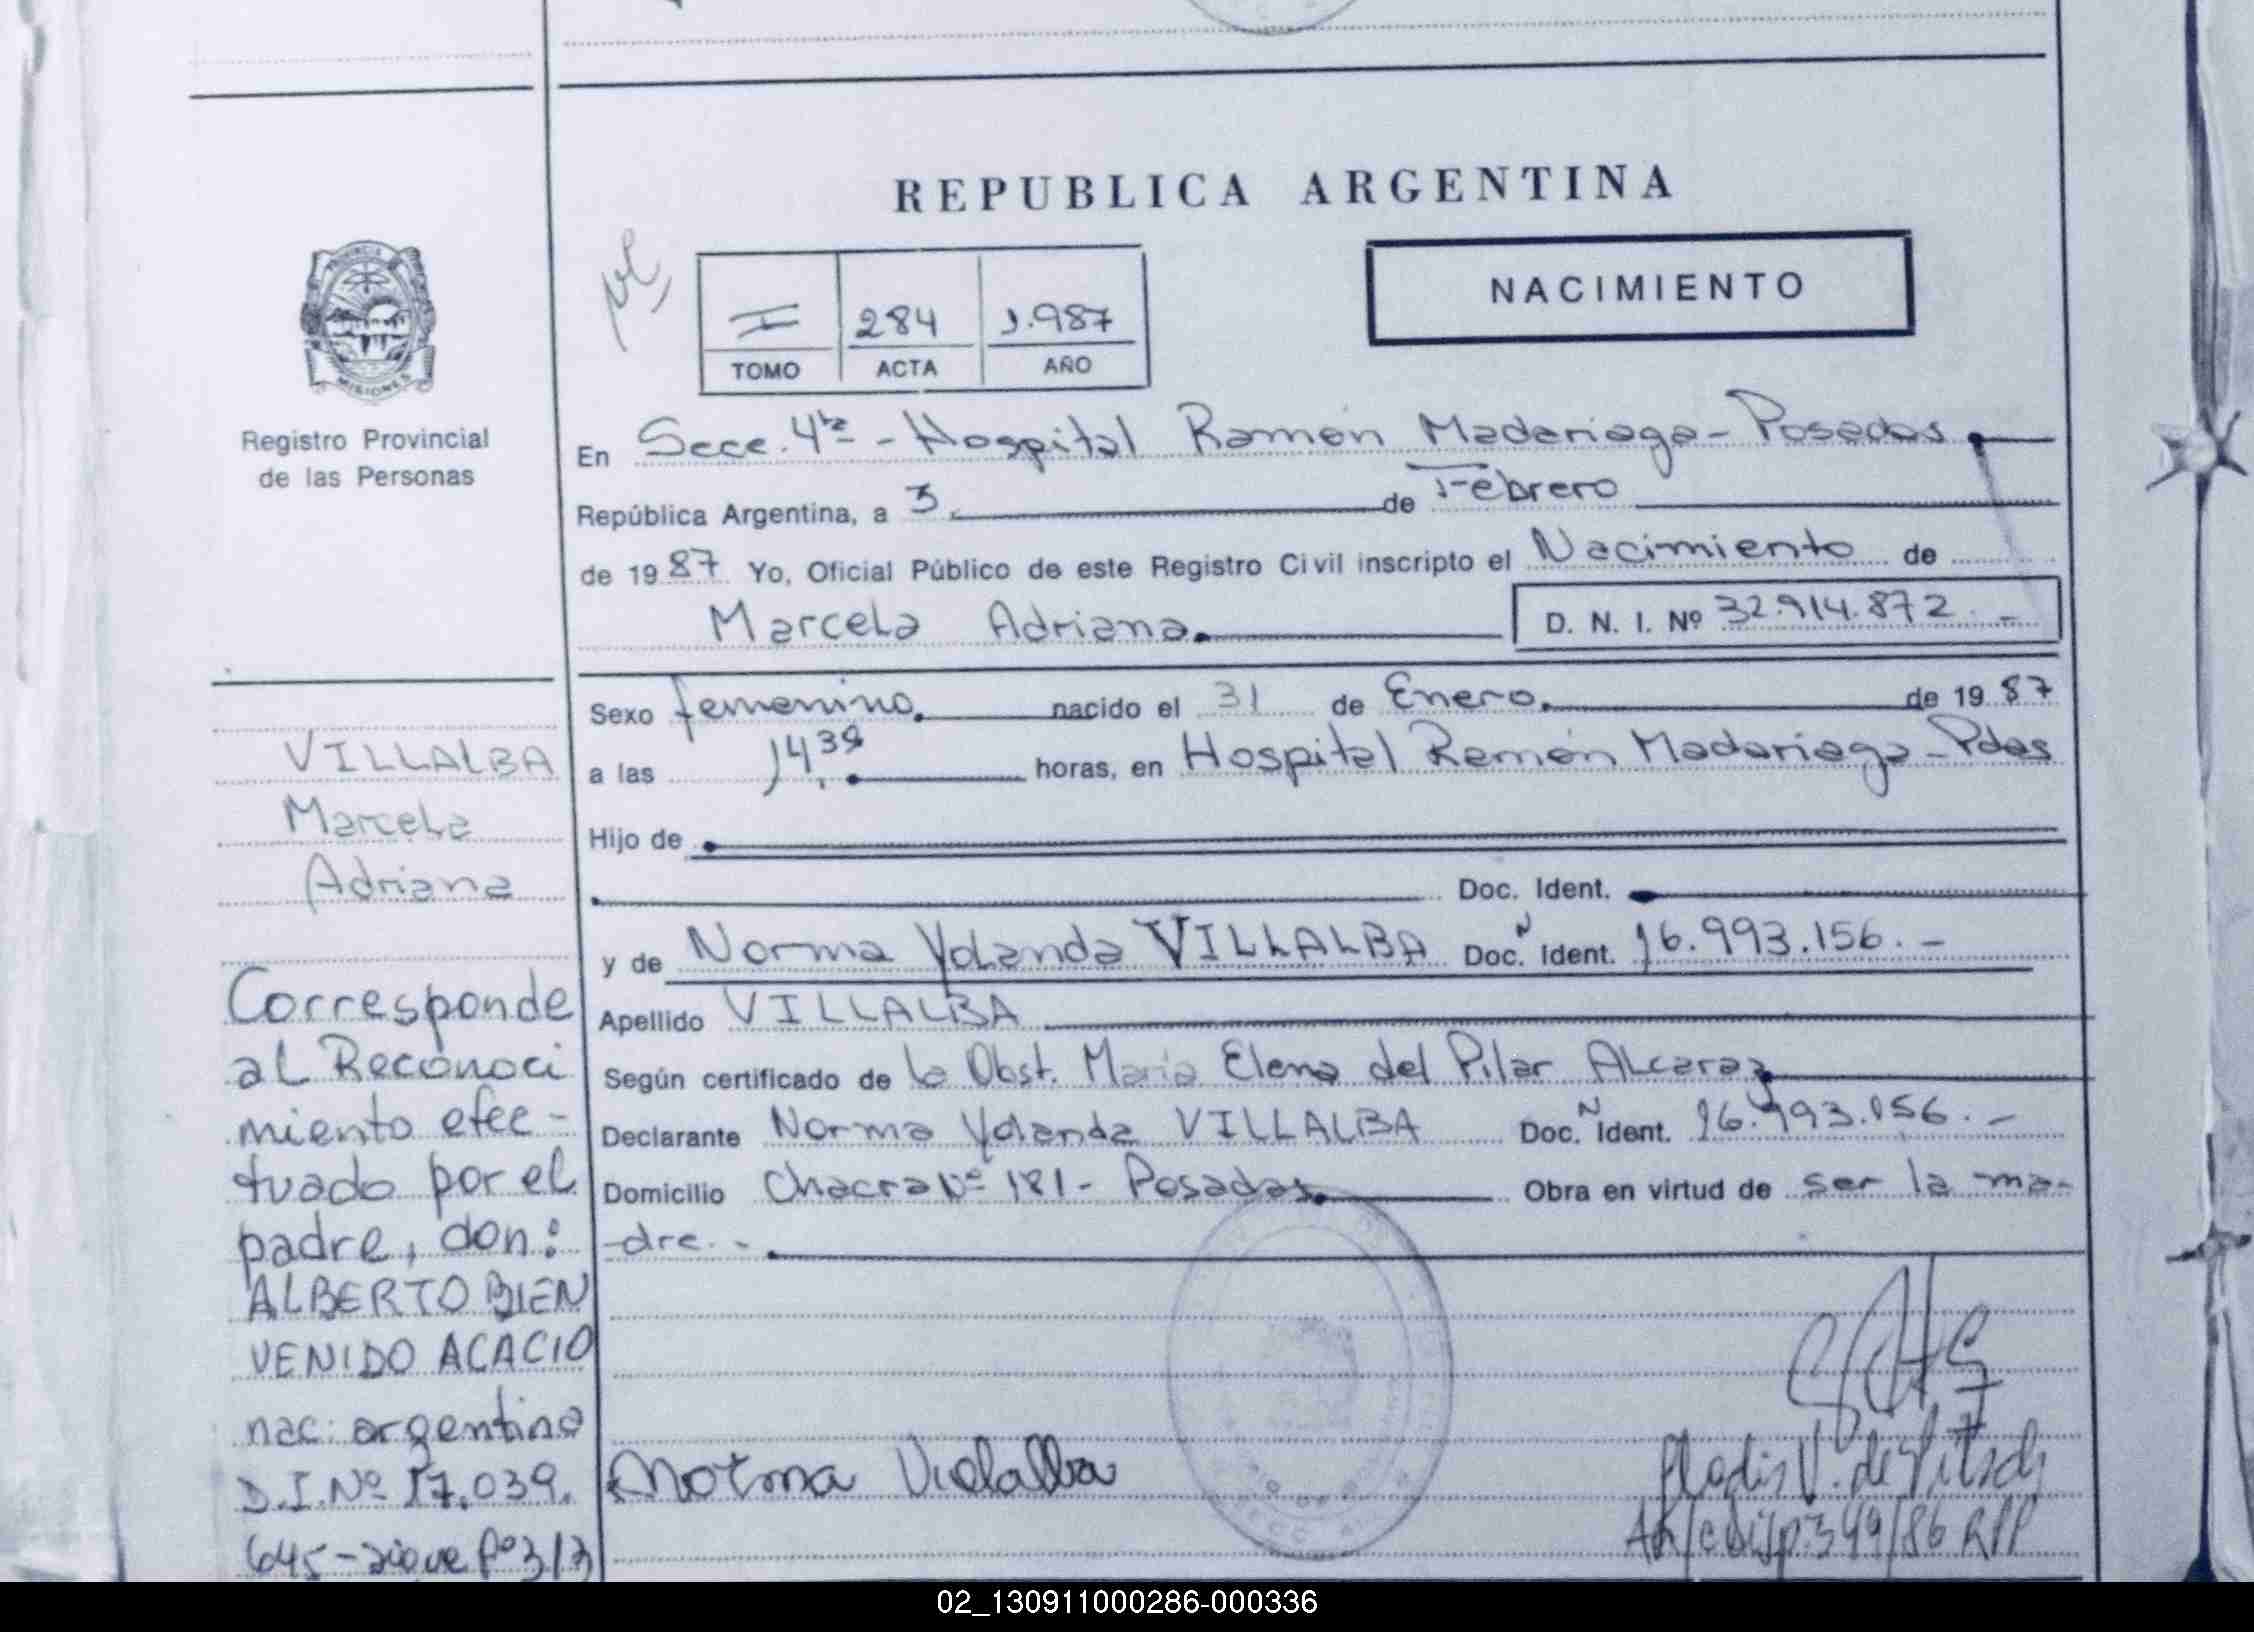 REPUBLICA ARGENTINA
NACIMIENTO
I 284 1.987
TOMO ACTA AÑO
PROVINCIA DE
MISIONES
Registro Provincial
de las Personas
En Secc. 4ta - Hospital Ramón Madariaga - Posadas
República Argentina, a 3. de Febrero
de 1987 Yo, Oficial Público de este Registro Civil inscripto el Nacimiento de
Marcela Adriana. D. N. I. Nº 32.914.872.-
Sexo femenino. nacido el 31 de Enero. de 1987
a las horas, en Hospital Ramón Madariaga - Pdas
Hijo de
Doc. Ident.
y de Norma Yolanda VILLALBA Doc. N Ident. 16.993.156.-
Apellido VILLALBA
Según certificado de la Obst. María Elena del Pilar Alcaraz
Declarante Norma Yolanda VILLALBA Doc. N Ident. 16.993.156.-
Domicilio Chacra Nº 181 - Posadas. Obra en virtud de ser la ma-
-dre.-
VILLALBA
Marcela
Adriana
Corresponde
al Reconoci
miento efec-
tuado por el
padre, don:
ALBERTO BIEN
VENIDO ACACIO
nac: argentino
D.I.Nº 17.039.
645 - sigue fº 313
Norma Villalba
349/86 RPP
02_130911000286-000336